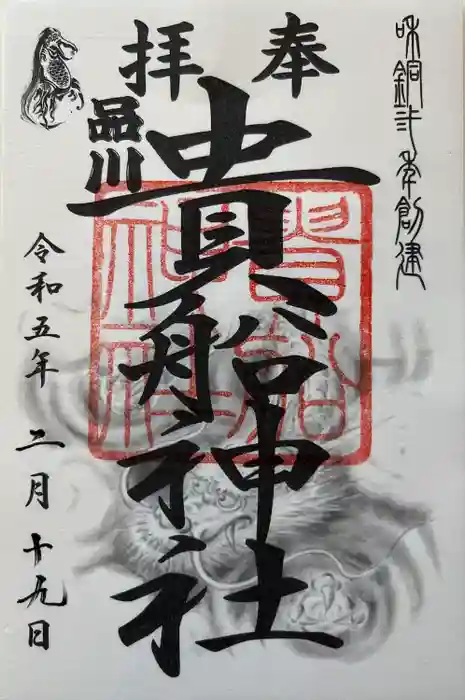 和銅弐年創建
奉拝
品川
貴船神社
貴船神社
令和五年 二月十九日